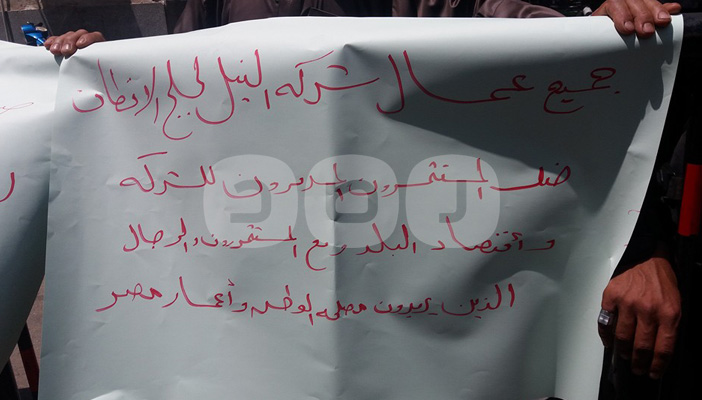 جميع عمال شركة النيل لحليج الاقطان
ضد المستثمرون المدمرون للشركة
و أقتصاد البلد ومع المستثمرون والرجال
الذين يريدون مصلحة الوطن وأعمار مصر